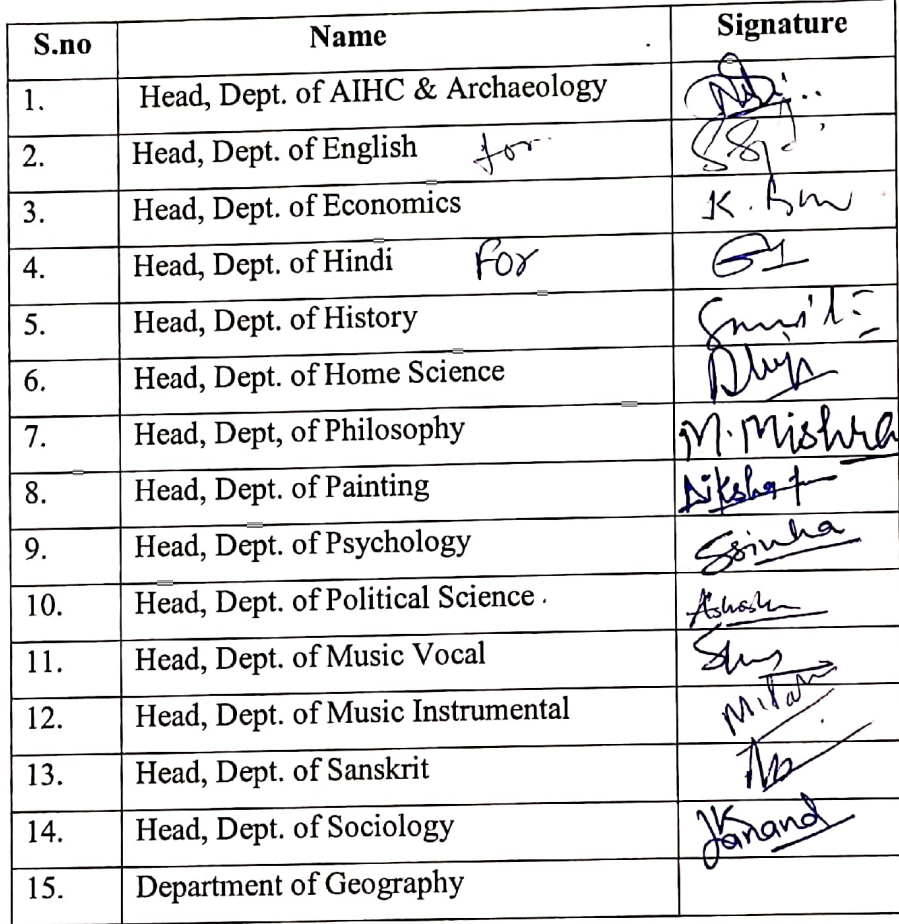 S.no Name Signature
1. Head, Dept. of AIHC & Archaeology
2. Head, Dept. of English for
3. Head, Dept. of Economics
4. Head, Dept. of Hindi For
5. Head, Dept. of History
6. Head, Dept. of Home Science
7. Head, Dept, of Philosophy M. Mishra
8. Head, Dept. of Painting
9. Head, Dept. of Psychology SSinha
10. Head, Dept. of Political Science .
11. Head, Dept. of Music Vocal
12. Head, Dept. of Music Instrumental
13. Head, Dept. of Sanskrit
14. Head, Dept. of Sociology
15. Department of Geography